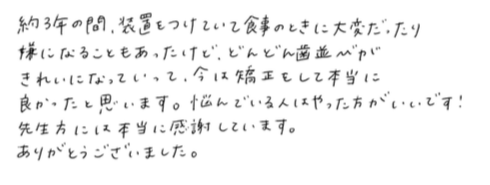 約3年の間、装置をつけていて食事のときに大変だったり
嫌になることもあったけど、どんどん歯並びが
きれいになっていって、今は矯正をして本当に
良かったと思います。悩んでいる人はやった方がいいです!
先生方には本当に感謝しています。
ありがとうございました。